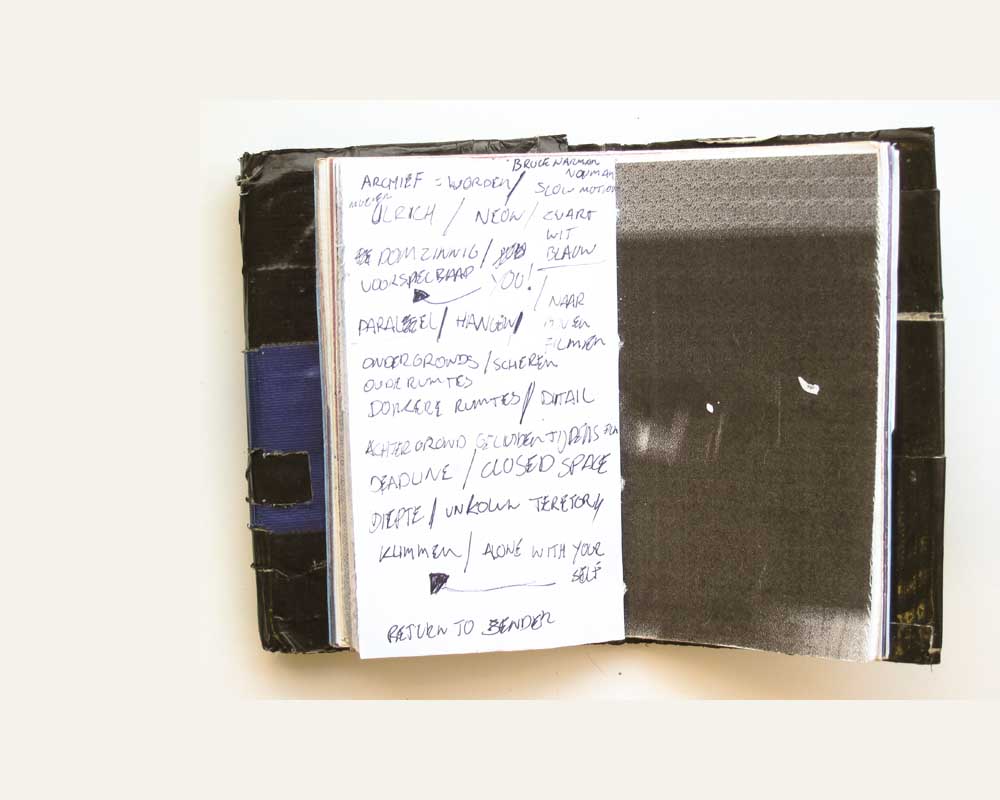 BRUCE NAUMAN
ARCHIEF = WORDEN / SLOW MOTION
ULRICH / NEON / ZWART
WIT
DOMZINNIG / BLAUW
VOORSPELBAAR YOU!
NAAR
PARALEEL / HANGEN /
FILMEN
ONDERGRONDS / SCHEREN
OUDE RUIMTES
DONKERE RUIMTES / DETAIL
ACHTERGROND GELUIDEN TIJDENS FILM
DEADLINE / CLOSED SPACE
DIEPTE / UNKOWN TERETORY
KLIMMEN / ALONE WITH YOUR
SELF
RETURN TO SENDER